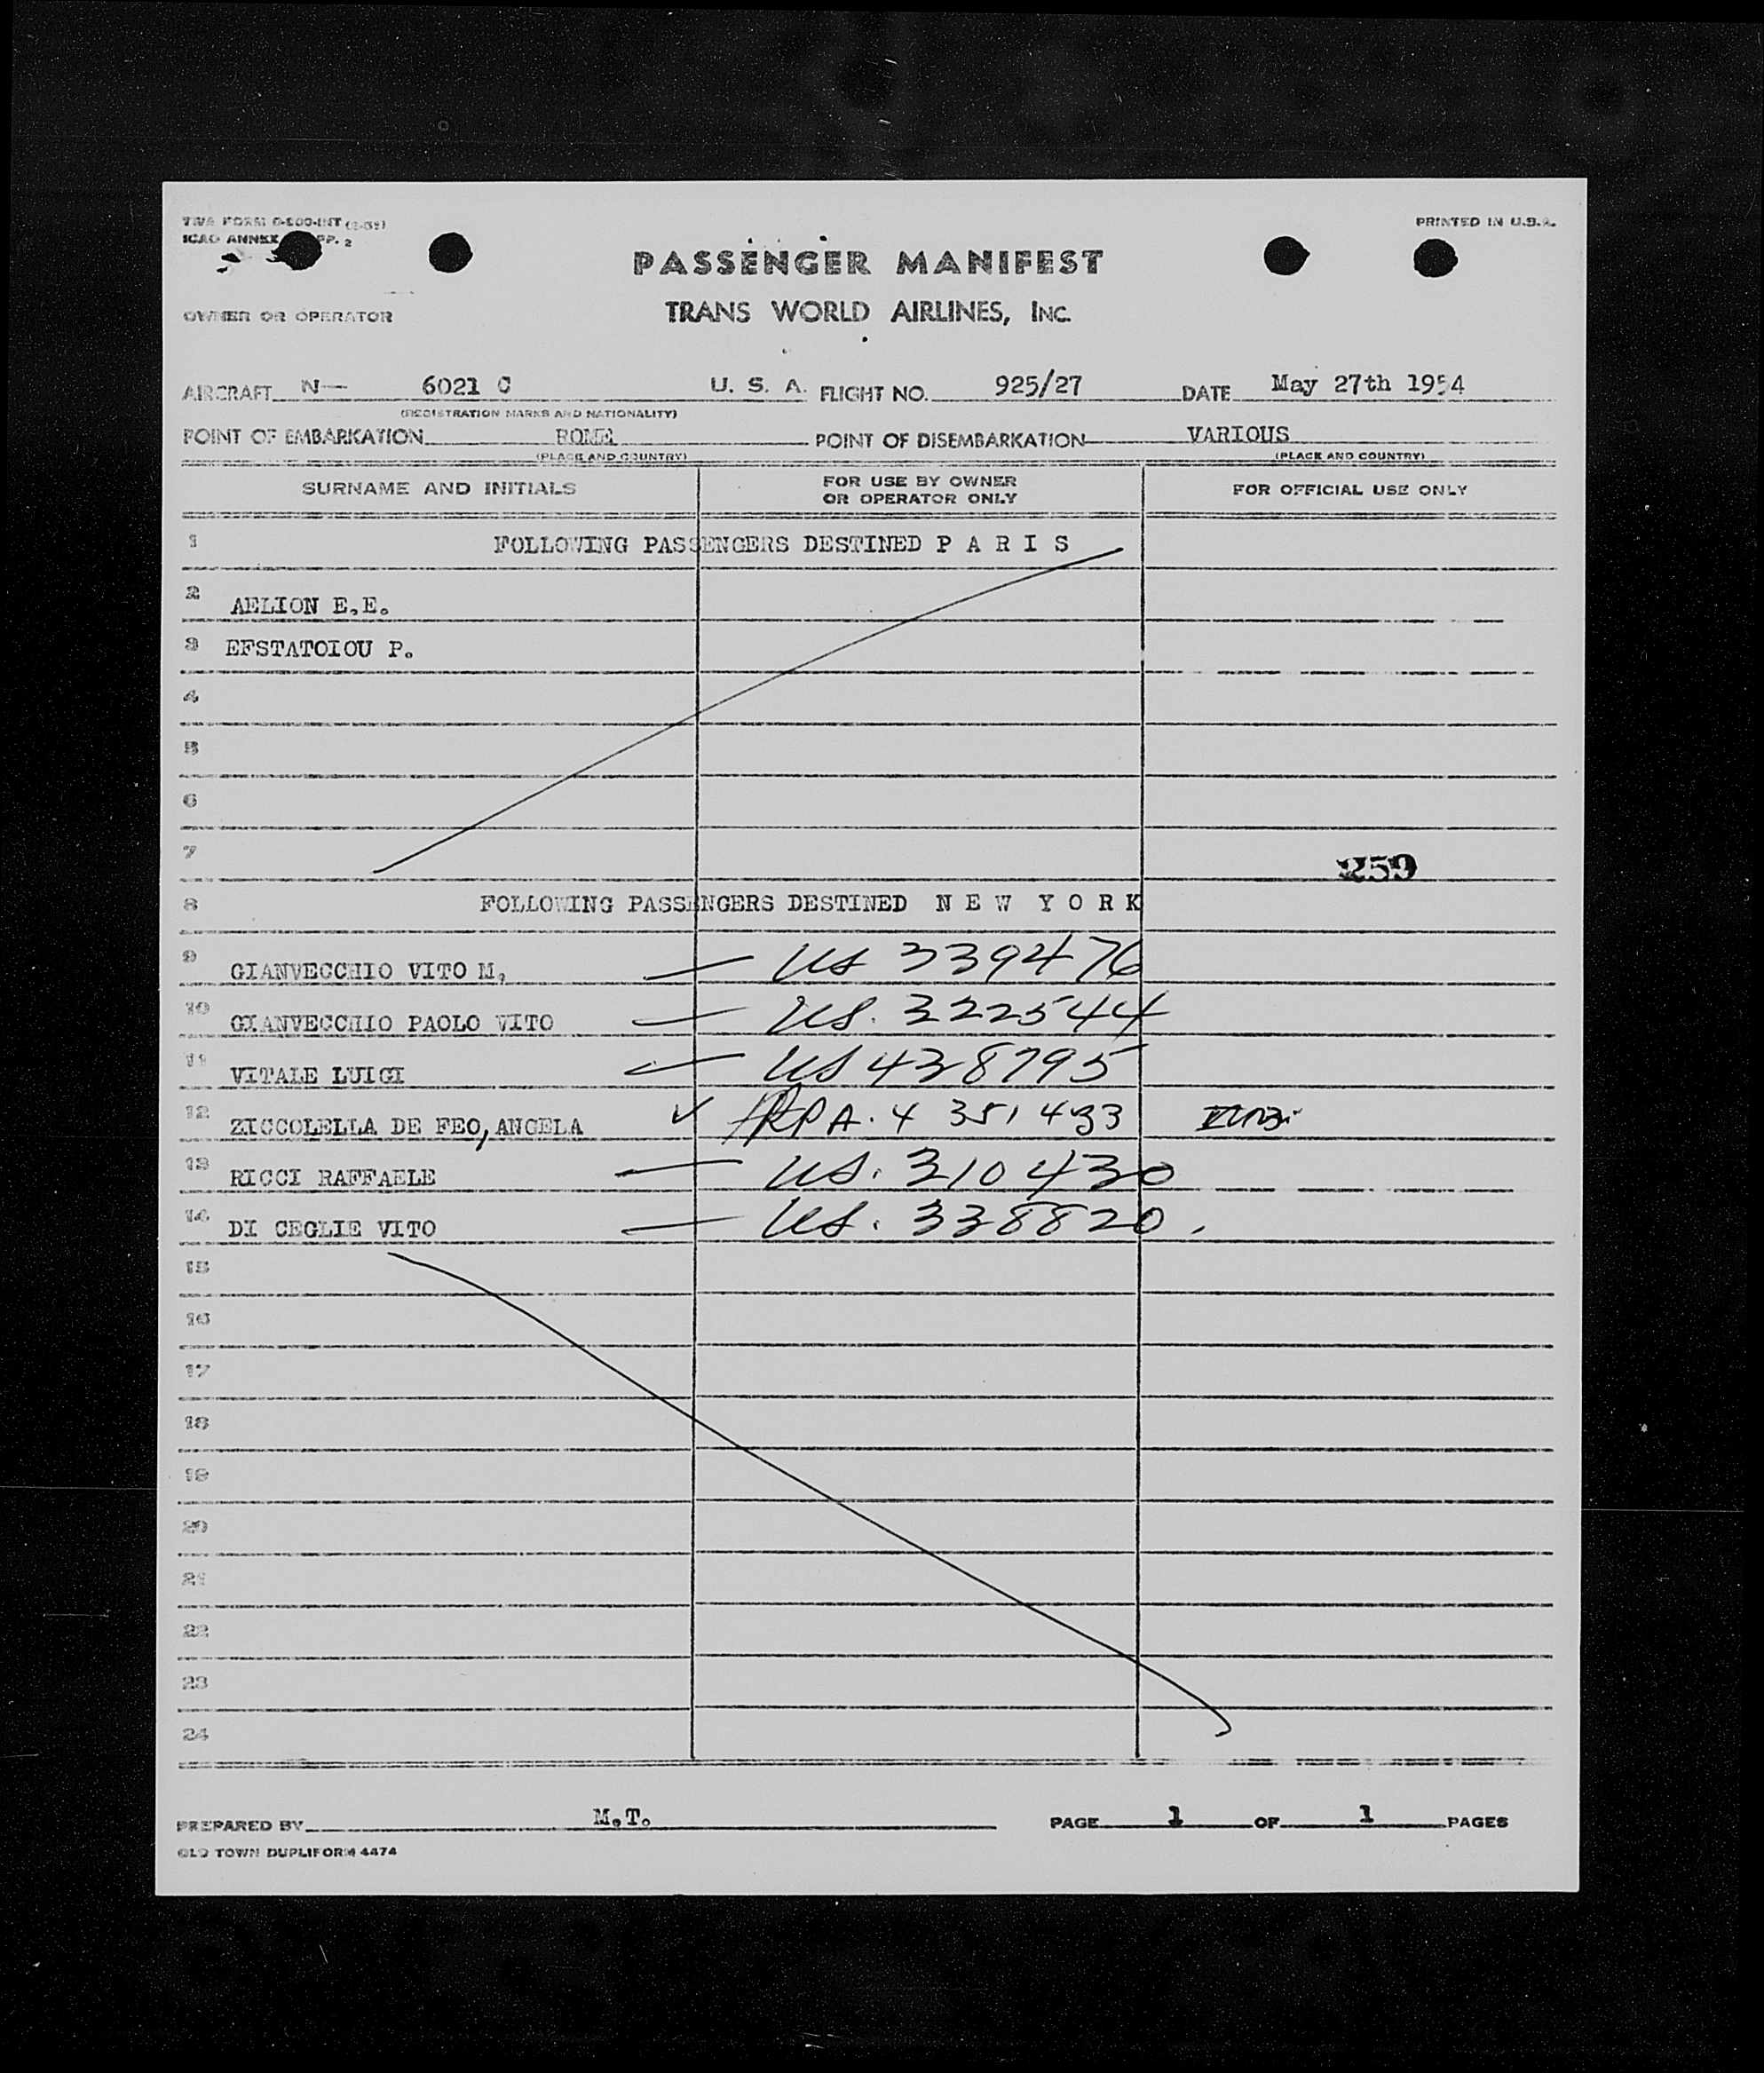 TWA FORM O-200-INT
PRINTED IN U.S.A.
ICAO ANNEX PP. 2
PASSENGER MANIFEST
OWNER OR OPERATOR TRANS WORLD AIRLINES, INC.
AIRCRAFT N— 6021 C U. S. A. FLIGHT NO. 925/27 DATE May 27th 1954
(REGISTRATION MARKS AND NATIONALITY)
POINT OF EMBARKATION ROME POINT OF DISEMBARKATION VARIOUS
(PLACE AND COUNTRY) (PLACE AND COUNTRY)
SURNAME AND INITIALS FOR USE BY OWNER OR OPERATOR ONLY FOR OFFICIAL USE ONLY
1 FOLLOWING PASSENGERS DESTINED P A R I S
2 AELION E.E.
3 EFSTATOIOU P.
4
5
6
7 259
8 FOLLOWING PASSENGERS DESTINED N E W Y O R K
9 GIANVECCHIO VITO M, — US 339476
10 GIANVECCHIO PAOLO VITO — US. 322544
11 VITALE LUIGI — US 438795
12 ZICCOLELLA DE FEO, ANGELA ✓ PA. 4 351 433
13 RICCI RAFFAELE — US. 310430
14 DI CEGLIE VITO — US. 338820.
15
16
17
18
19
20
21
22
23
24
PREPARED BY M.T. PAGE 1 OF 1 PAGES
OLD TOWN DUPLIFORM 4474